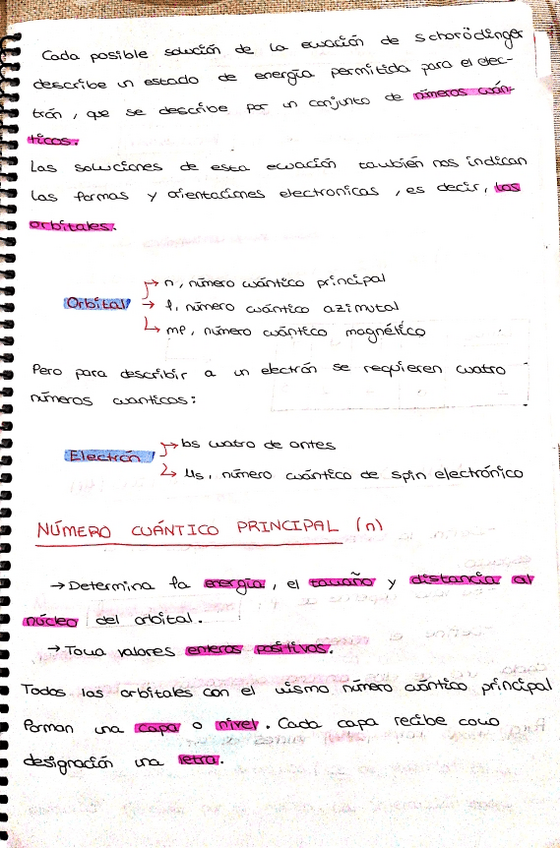 Cada posible solución de la ecuación de schorödinger
describe un estado de energía permitida para el elec-
trón, que se describe por un conjunto de números cuán-
ticos.
Las soluciones de esta ecuación también nos indican
las formas y orientaciones electronicas, es decir, los
orbitales.
→ n, número cuántico principal
Orbital → l, número cuántico azimutal
→ ml, número cuántico magnético
Pero para describir a un electrón se requieren cuatro
números cuanticos:
Electrón → los cuatro de antes
→ Ms, número cuántico de spin electrónico
NÚMERO CUÁNTICO PRINCIPAL (n)
→ Determina la energía, el tamaño y distancia al
núcleo del orbital.
→ Toma valores enteros positivos.
Todos los orbitales con el mismo número cuántico principal
forman una capa o nivel. Cada capa recibe como
designación una letra.